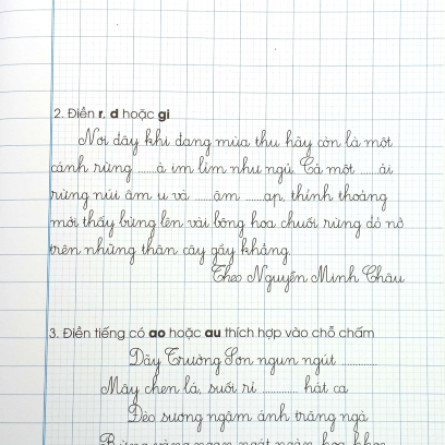 2. Điền r, d hoặc gi
Nơi đây khi đang mùa thu hãy còn là một
cánh rừng ......à im lìm như ngủ. Cả một ......ải
rừng núi âm u và ......ậm ......ạp, thỉnh thoảng
mới thấy bừng lên vài bông hoa chuối rừng đỏ nở
trên những thân cây gầy khẳng
Theo Nguyễn Minh Châu
3. Điền tiếng có ao hoặc au thích hợp vào chỗ chấm
Dãy Trường Sơn ngun ngút ............
Mây chen lá, suối rì ............ hát ca
Đèo sương ngậm ánh trăng ngà